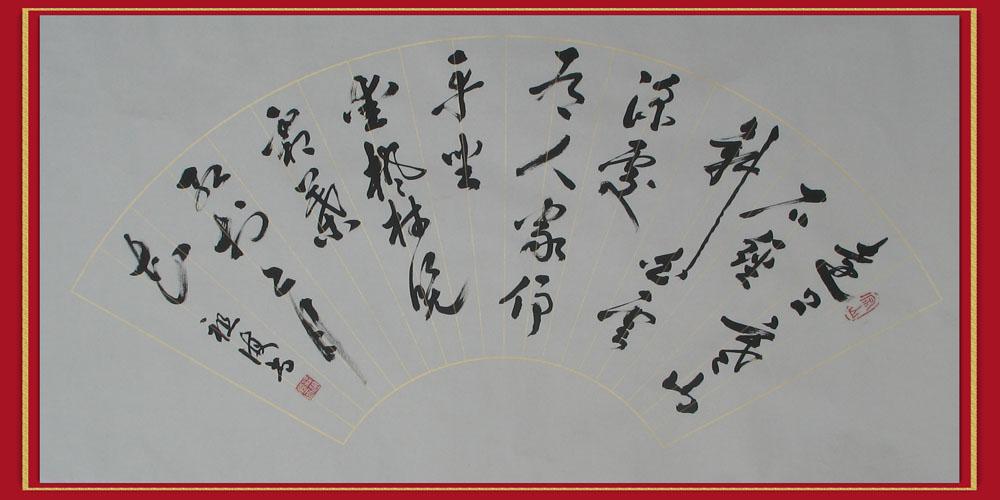 遠上寒山
石徑
斜白雲
深處
有人家停
車坐
愛楓林晚
霜葉
紅於二月
花